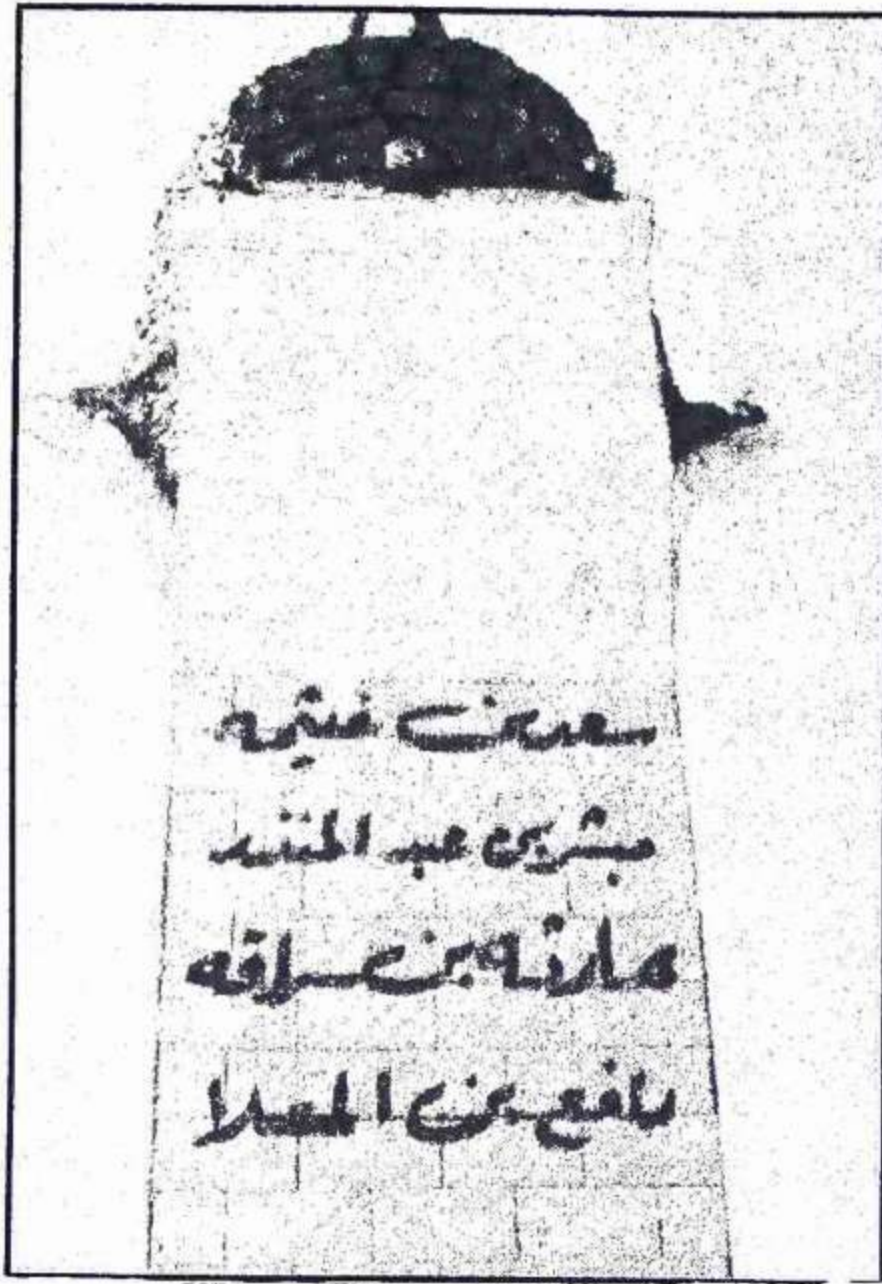 سعد بن خثيمه
مبشر بن عبد المنذر
حارثه بن سراقه
رافع بن المعلا